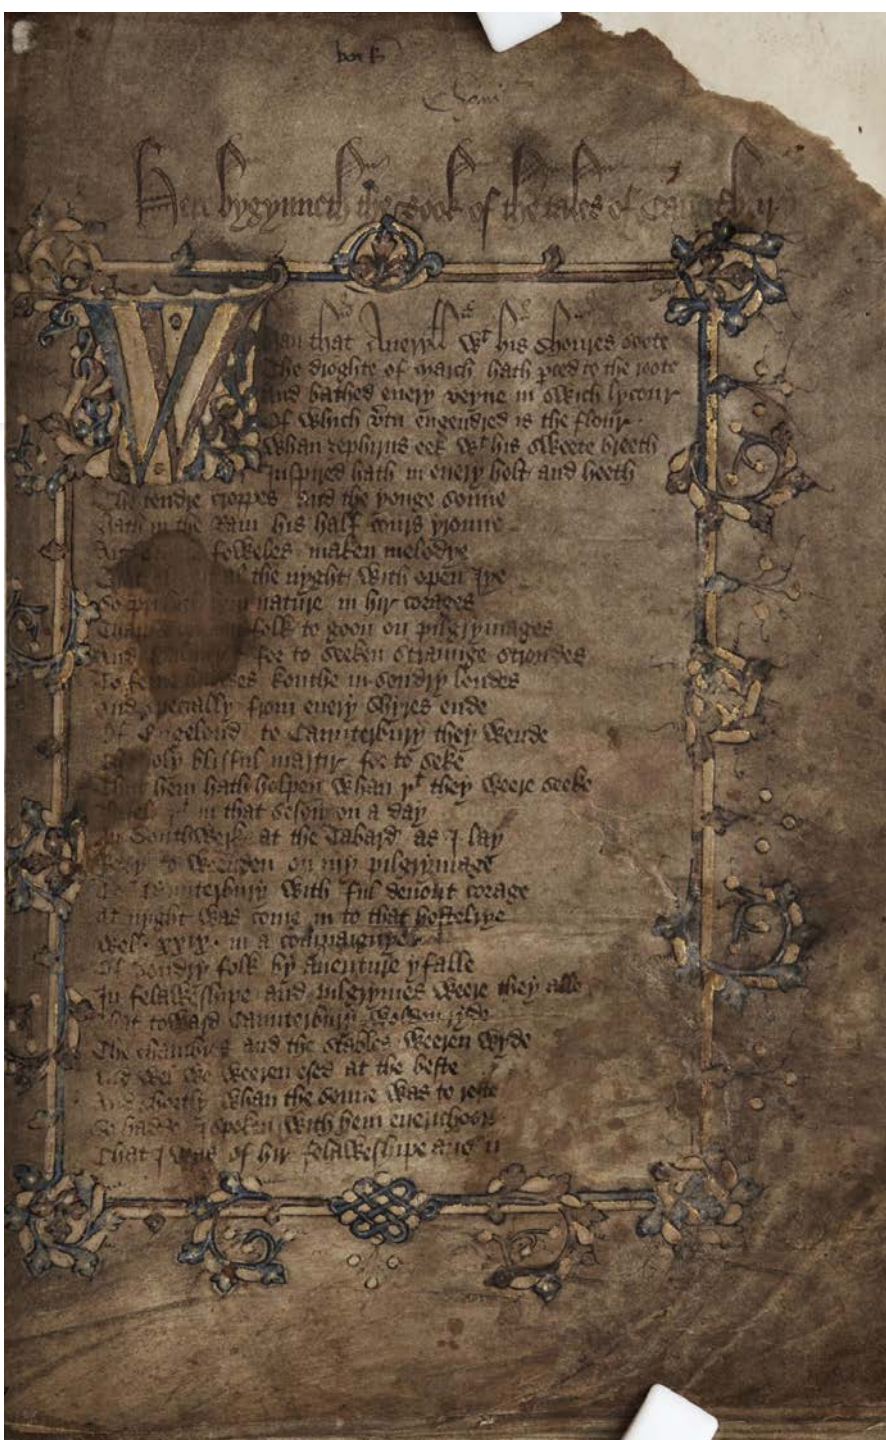 Here bygynneth the Book of the tales of Caunterbury
Whan that Aueryll wt his shoures soote
The droghte of march hath pced to the roote
And bathed euery veyne in swich lycour
Of which vtu engendred is the flour
Whan zephirus eek wt his sweete breeth
Inspired hath in euery holt and heeth
The tendre croppes and the yonge sonne
Hath in the Ram his half cours yronne
And foweles maken melodye
That al the nyght with open Iye
So hem nature in hir corages
Thanne folk to goon on pilgrymages
And for to seeken straunge strondes
To ferne halwes kouthe in sondry londes
And specially from euery shyres ende
Of Engelond to Caunterbury they wende
The holy blisful martir for to seke
That hem hath holpen whan yt they weere seeke
Bifel yt in that seson on a day
In Southwerk at the Tabard as I lay
Redy to weenden on my pilgrymage
To Caunterbury with ful deuout corage
At nyght was come in to that hostelrye
Wel xxix in a compaignye
Of sondry folk by auenture yfalle
In felaweshipe and pilgrymes weere they alle
That toward Caunterbury wolden ryde
The chambres and the stables weeren wyde
And wel we weeren esed at the beste
And shortly whan the sonne was to reste
So hadde I spoken with hem euerichoon
That I was of hir felaweshipe